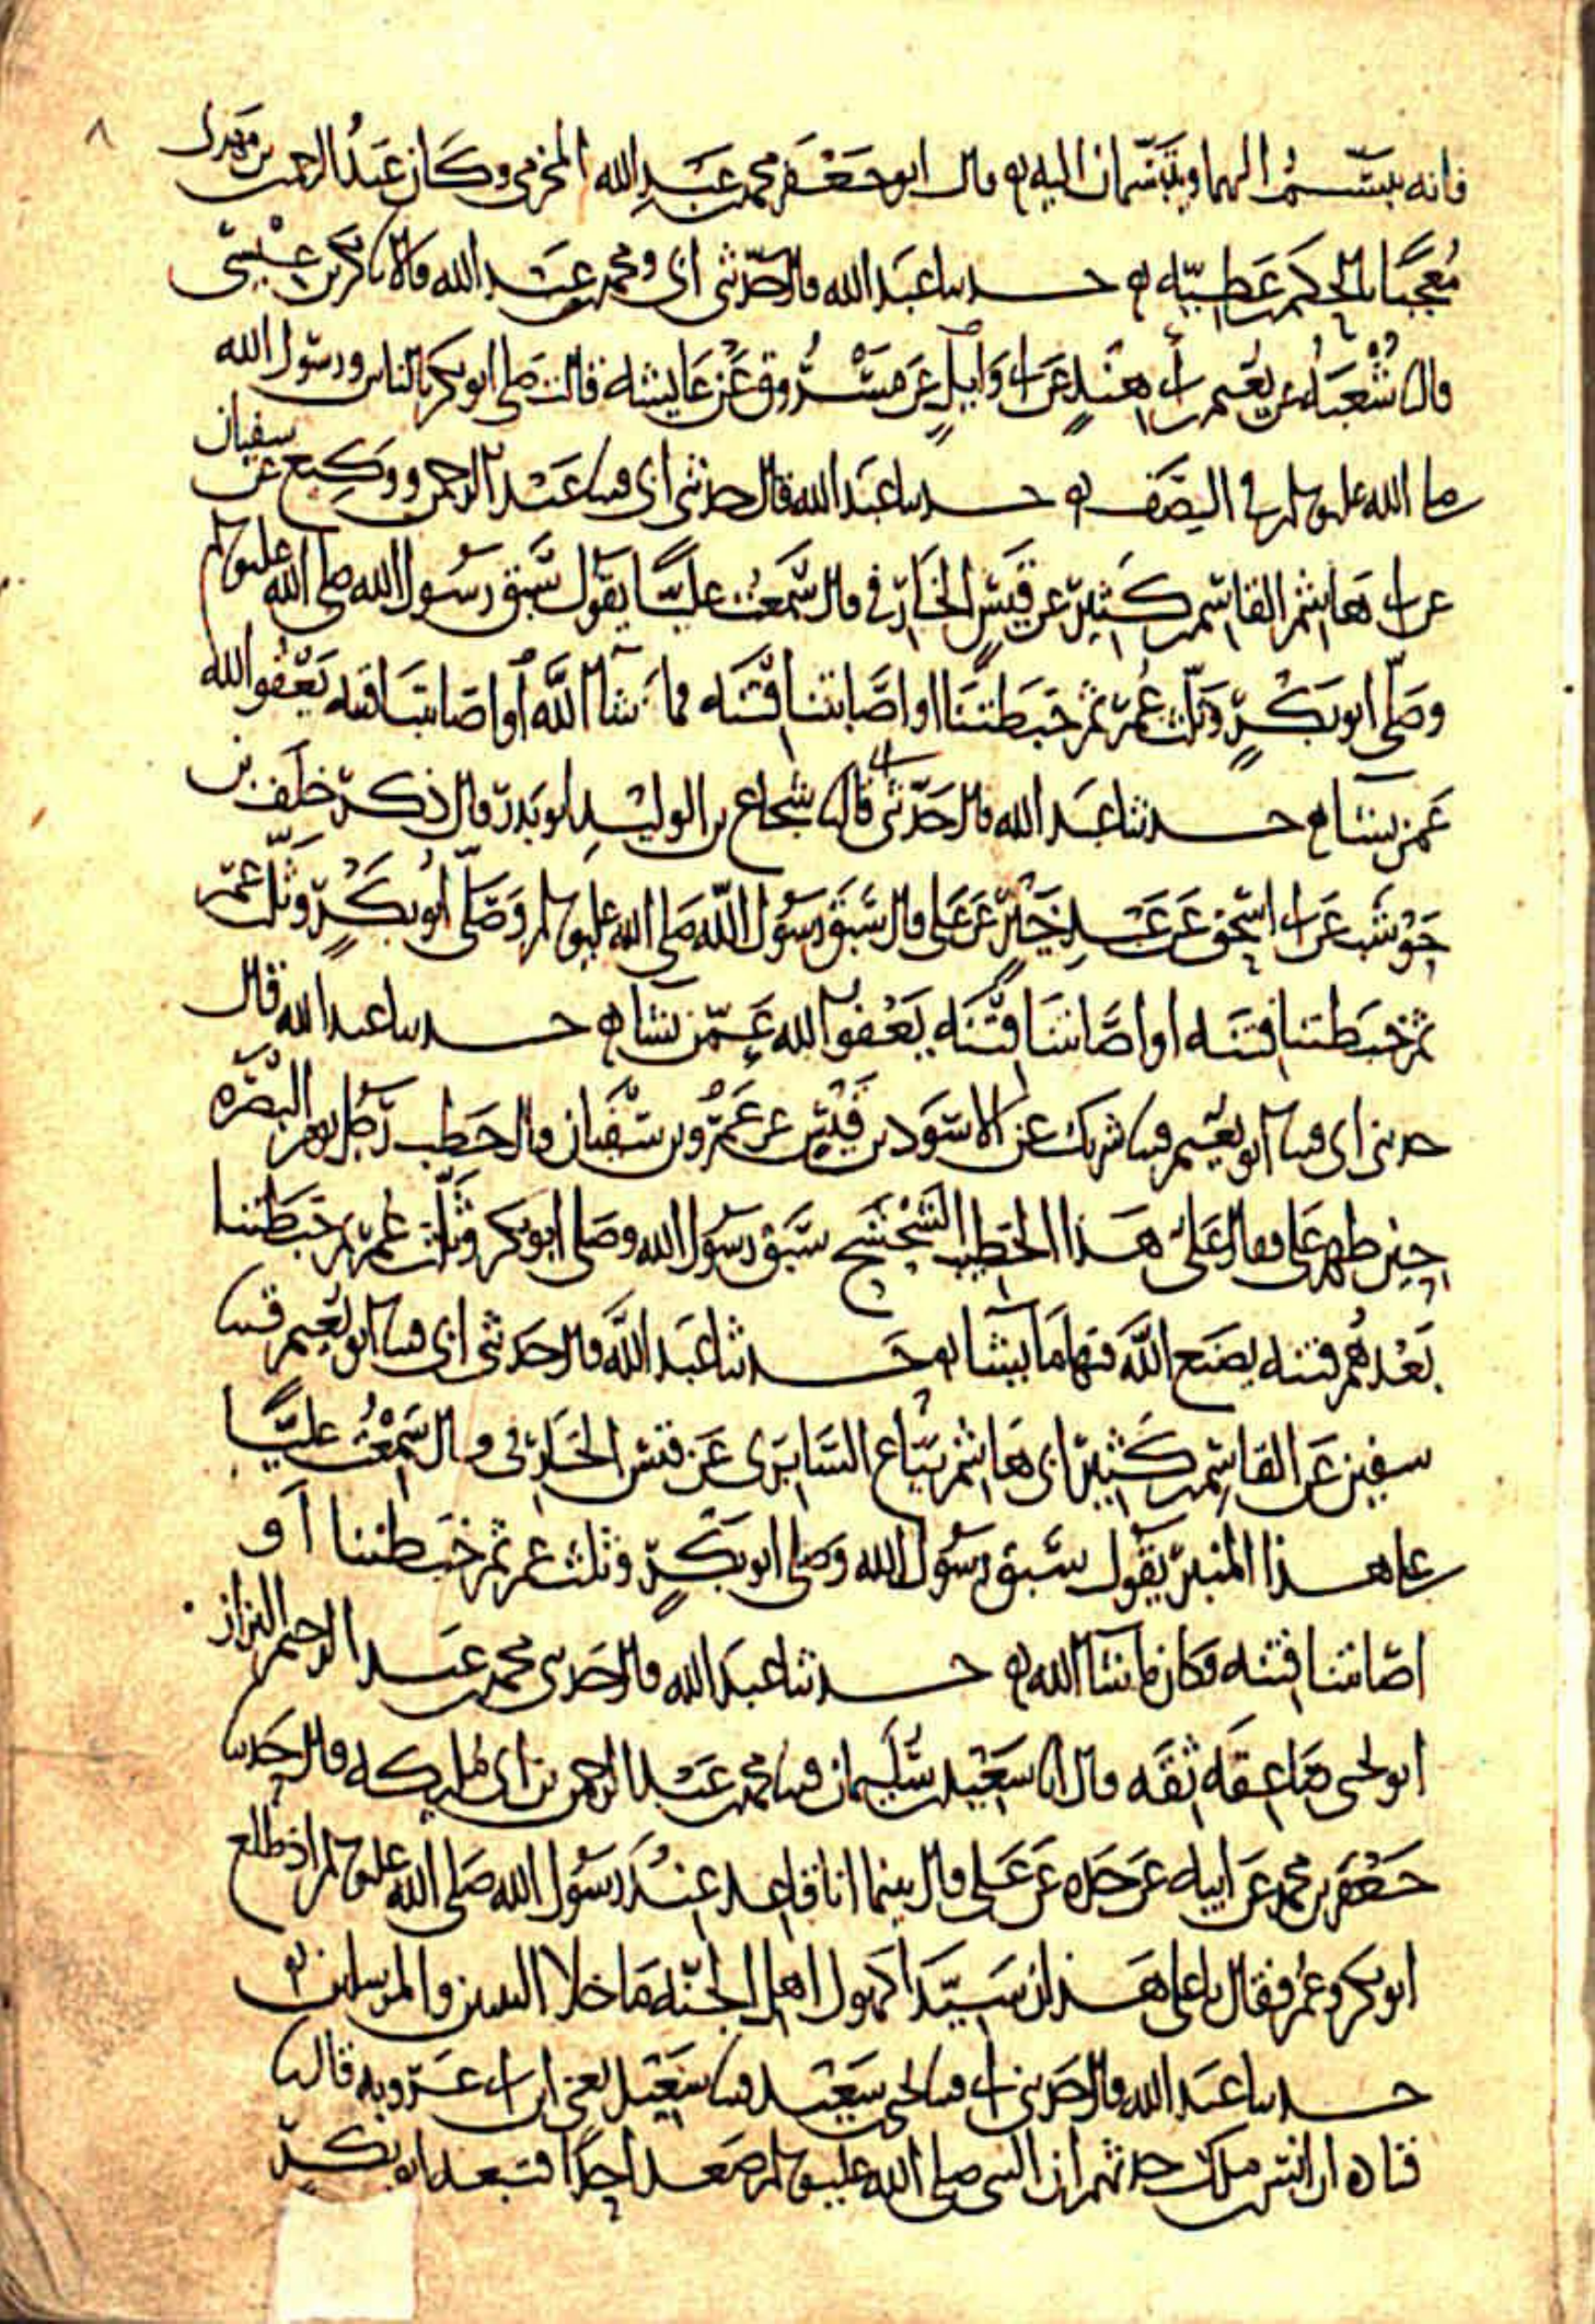 ٨
فانه يتبسم اليهما ويتبسمان اليه قال ابو جعفر محمد بن عبد الله المخرمي وكان عبد الرحمن بن مهدي
معجبا بالحكم بن عطية حدثنا عبد الله قال حدثني ابي ومحمد بن عبد الله قالا نا بكر بن عيسى
قال نا شعبة عن نعيم بن ابي هند عن ابي وايل عن مسروق عن عايشة قالت صلى ابو بكر بالناس ورسول الله
صلى الله عليه وسلم في الصف حدثنا عبد الله قال حدثني ابي قثنا عبد الرحمن ووكيع عن سفيان
عن ابي هاشم القاسم بن كثير عن قيس الخارفي قال سمعت عليا يقول سبق رسول الله صلى الله عليه وسلم
وصلى ابو بكر وثلث عمر ثم خبطتنا او اصابتنا فتنة فما شا الله او اصابتنا فتنة يعفو الله
عمن يشا حدثنا عبد الله قال حدثني ابي قال نا شجاع بن الوليد ابو بدر قال ذكر خلف بن
حوشب عن ابي اسحق عن عبد خير عن علي قال سبق رسول الله صلى الله عليه وسلم وصلى ابو بكر وثلث عمر
ثم خبطتنا فتنة او اصابتنا فتنة يعفو الله عمن يشا حدثنا عبد الله قال
حدثني ابي قثنا ابو نعيم قثنا شريك عن الاسود بن قيس عن عمرو بن سفيان قال خطب رجل يوم البصرة
حين ظهر علي فقال علي هذا الخطيب الشحشح سبق رسول الله وصلى ابو بكر وثلث عمر ثم خبطتنا
بعدهم فتنة يصنع الله فيها ما يشا حدثنا عبد الله قال حدثني ابي قثنا ابو نعيم قثنا
سفين عن القاسم بن كثير ابي هاشم بياع السابري عن قيس الخارفي قال سمعت عليا
على هذا المنبر يقول سبق رسول الله وصلى ابو بكر وثلث عمر ثم خبطتنا او
اصابتنا فتنة فكان ما شا الله حدثنا عبد الله قال حدثني محمد بن عبد الرحيم البزاز
ابو يحيى صاعقة ثقة قال انا سعيد بن سليمان قثنا محمد بن عبد الرحمن بن ابي مليكة قال حدثنا
جعفر بن محمد عن ابيه عن جده عن علي قال بينما انا قاعد عند رسول الله صلى الله عليه وسلم اذ طلع
ابو بكر وعمر فقال يا علي هذان سيدا كهول اهل الجنة ما خلا النبيين والمرسلين
حدثنا عبد الله قال حدثني ابي قثنا يحيى بن سعيد قثنا سعيد يعني ابن ابي عروبة قال نا
قتادة ان انس بن ملك حدثهم ان النبي صلى الله عليه وسلم صعد احدا فتبعه ابو بكر